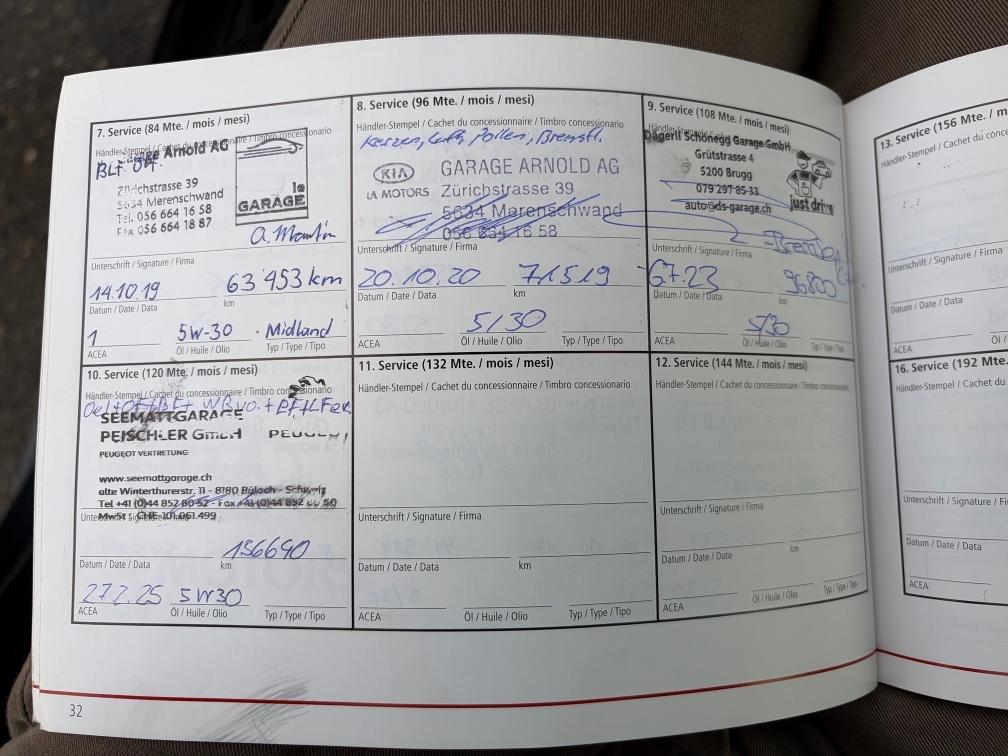 7. Service (84 Mte. / mois / mesi)
Händler-Stempel / Cachet du concessionnaire / Timbro concessionario
Arnold AG
Zürichstrasse 39
5634 Merenschwand
Tel. 056 664 16 58
Fax 056 664 18 87
1a
GARAGE
Unterschrift / Signature / Firma
14.10.19 63 453 km
Datum / Date / Data km
1 5W-30 Midland
ACEA Öl / Huile / Olio Typ / Type / Tipo
8. Service (96 Mte. / mois / mesi)
Händler-Stempel / Cachet du concessionnaire / Timbro concessionario
Kerzen, Luft, Pollen, Bremsfl.
KIA GARAGE ARNOLD AG
KIA MOTORS Zürichstrasse 39
5634 Merenschwand
056 664 16 58
Unterschrift / Signature / Firma
20.10.20 71519
Datum / Date / Data km
5/30
ACEA Öl / Huile / Olio Typ / Type / Tipo
9. Service (108 Mte. / mois / mesi)
Schönegg Garage GmbH
Grütstrasse 4
5200 Brugg
079 297 85 33
auto@ds-garage.ch
just drive
Unterschrift / Signature / Firma
6.7.23 96800
Datum / Date / Data km
5/30
ACEA Öl / Huile / Olio Typ / Type / Tipo
10. Service (120 Mte. / mois / mesi)
Händler-Stempel / Cachet du concessionnaire / Timbro concessionario
SEEMATTGARAGE
PEISCHLER GmbH PEUGEOT
PEUGEOT VERTRETUNG
www.seemattgarage.ch
alte Winterthurerstr. 11 - 8180 Bülach - Schweiz
Tel +41 (0)44 852 80 52 - Fax +41 (0)44 852
MwSt CHE 101.061.499
136640
Datum / Date / Data km
27.2.25 5W30
ACEA Öl / Huile / Olio Typ / Type / Tipo
11. Service (132 Mte. / mois / mesi)
Händler-Stempel / Cachet du concessionnaire / Timbro concessionario
Unterschrift / Signature / Firma
Datum / Date / Data km
ACEA Öl / Huile / Olio Typ / Type / Tipo
12. Service (144 Mte. / mois / mesi)
Händler-Stempel / Cachet du concessionnaire / Timbro concessionario
Unterschrift / Signature / Firma
Datum / Date / Data km
ACEA Öl / Huile / Olio Typ / Type / Tipo
32
13. Service (156 Mte. / mois
Händler-Stempel / Cachet du
Unterschrift / Signature / Firma
Datum / Date / Data
ACEA Öl / Huile / Olio
16. Service (192 Mte.
Händler-Stempel / Cachet du
Unterschrift / Signature /
Datum / Date / Data
ACEA